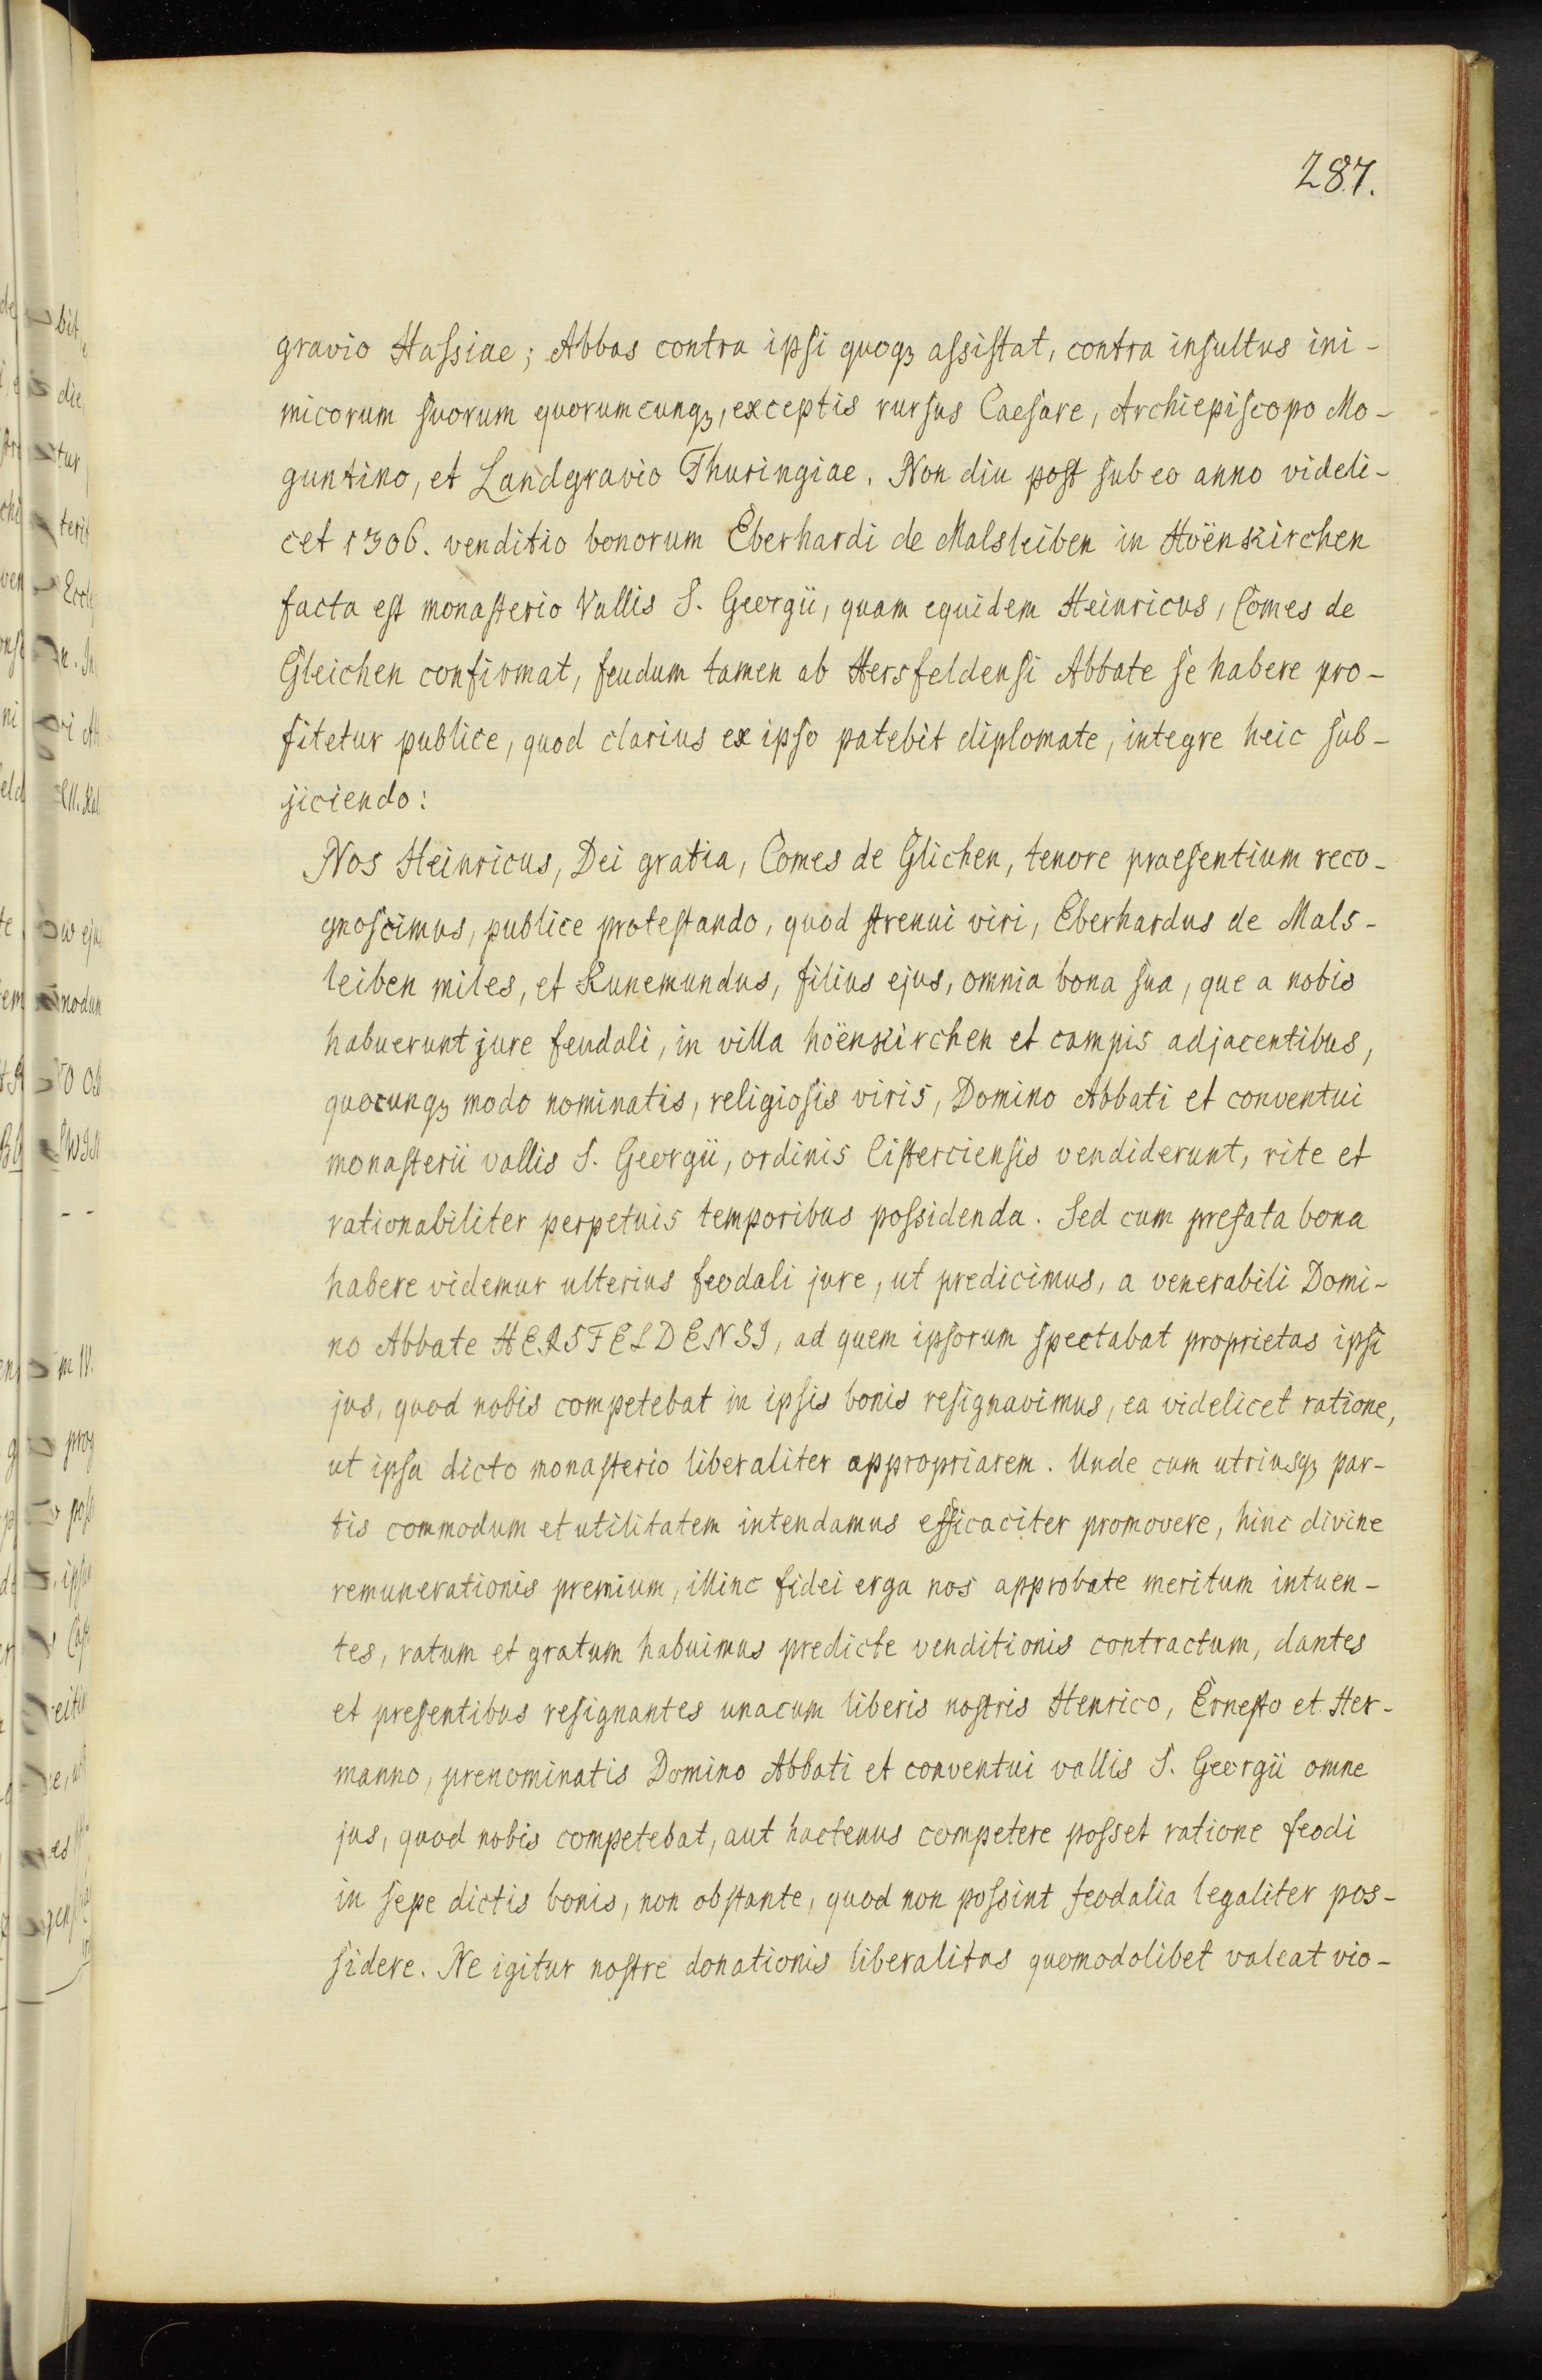 287.
gravio Hassiae; Abbas contra ipsi quoqꝫ assistat, contra insultus ini-
micorum suorum quorumcunqꝫ, exceptis rursus Caesare, Archiepiscopo Mo-
guntino, et Landgravio Thuringiae. Non diu post sub eo anno videli-
cet 1306. venditio bonorum Eberhardi de Malsleiben in Hoënkirchen
facta est monasterio Vallis S. Georgii, quam equidem Heinricus, Comes de
Gleichen confirmat, feudum tamen ab Hersfeldensi Abbate se habere pro-
fitetur publice, quod clarius ex ipso patebit diplomate, integre heic sub-
jiciendo:
Nos Heinricus, Dei gratia, Comes de Glichen, tenore praesentium reco-
gnoscimus, publice protestando, quod strenui viri, Eberhardus de Mals-
leiben miles, et Kunemundus, filius ejus, omnia bona sua, que a nobis
habuerunt jure feudali, in villa hoënkirchen et campis adjacentibus,
quocunqꝫ modo nominatis, religiosis viris, Domino Abbati et conventui
monasterii vallis S. Georgii, ordinis Cisterciensis vendiderunt, rite et
rationabiliter perpetuis temporibus possidenda. Sed cum prefata bona
habere videmur ulterius feodali jure, ut predicimus, a venerabili Domi-
no Abbate HERSFELDENSI, ad quem ipsorum spectabat proprietas ipsi
jus, quod nobis competebat in ipsis bonis resignavimus, ea videlicet ratione,
ut ipsa dicto monasterio liberaliter appropriarem. Unde cum utriusqꝫ par-
tis commodum et utilitatem intendamus efficaciter promovere, hinc divine
remunerationis premium, illinc fidei erga nos approbate meritum intuen-
tes, ratum et gratum habuimus predicte venditionis contractum, dantes
et presentibus resignantes unacum liberis nostris Henrico, Ernesto et Her-
manno, prenominatis Domino Abbati et conventui vallis S. Georgii omne
jus, quod nobis competebat, aut hactenus competere posset ratione feodi
in sepe dictis bonis, non obstante, quod non possint feodalia legaliter pos-
sidere. Ne igitur nostre donationis liberalitas quomodolibet valeat vio-